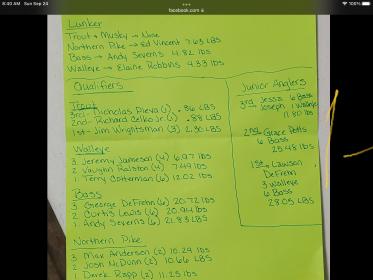 8:40 AM Sun Sep 24
facebook.com
100%
Lunker
Trout + Musky → None
Northern Pike → Ed Vincent 7.63 LBS
Bass → Andy Severns 4.82 lbs
Walleye → Elaine Robbins 4.33 lbs
Qualifiers
Trout
3rd - Nicholas Pieva (1) .86 LBS
2nd - Richard Celko Jr. (1) .88 LBS
1st - Jim Wrightsman (3) 2.30 LBS
Walleye
3 Jeremy Jameson (4) 6.97 lbs
2 Vaughn Ralston (4) 7.49 lbs
1 Terry Cotterman (6) 12.02 lbs
Bass
3 George DeFrehn (6) 20.72 lbs
2 Curtis Lewis (6) 20.94 lbs
1 Andy Severns (6) 21.83 LBS
Northern Pike
3 Max Anderson (2) 10.29 lbs
2 Josh McDunn (2) 10.66 LBS
1 Derek Rapp (2) 11.25 lbs
Junior Anglers
3rd Jessa 6 Bass
Joseph 1 Walleye
11.80 lbs
2nd Grace Potts
6 Bass
25.48 lbs
1st Lawson
DeFrehn
3 Walleye
6 Bass
28.05 LBS